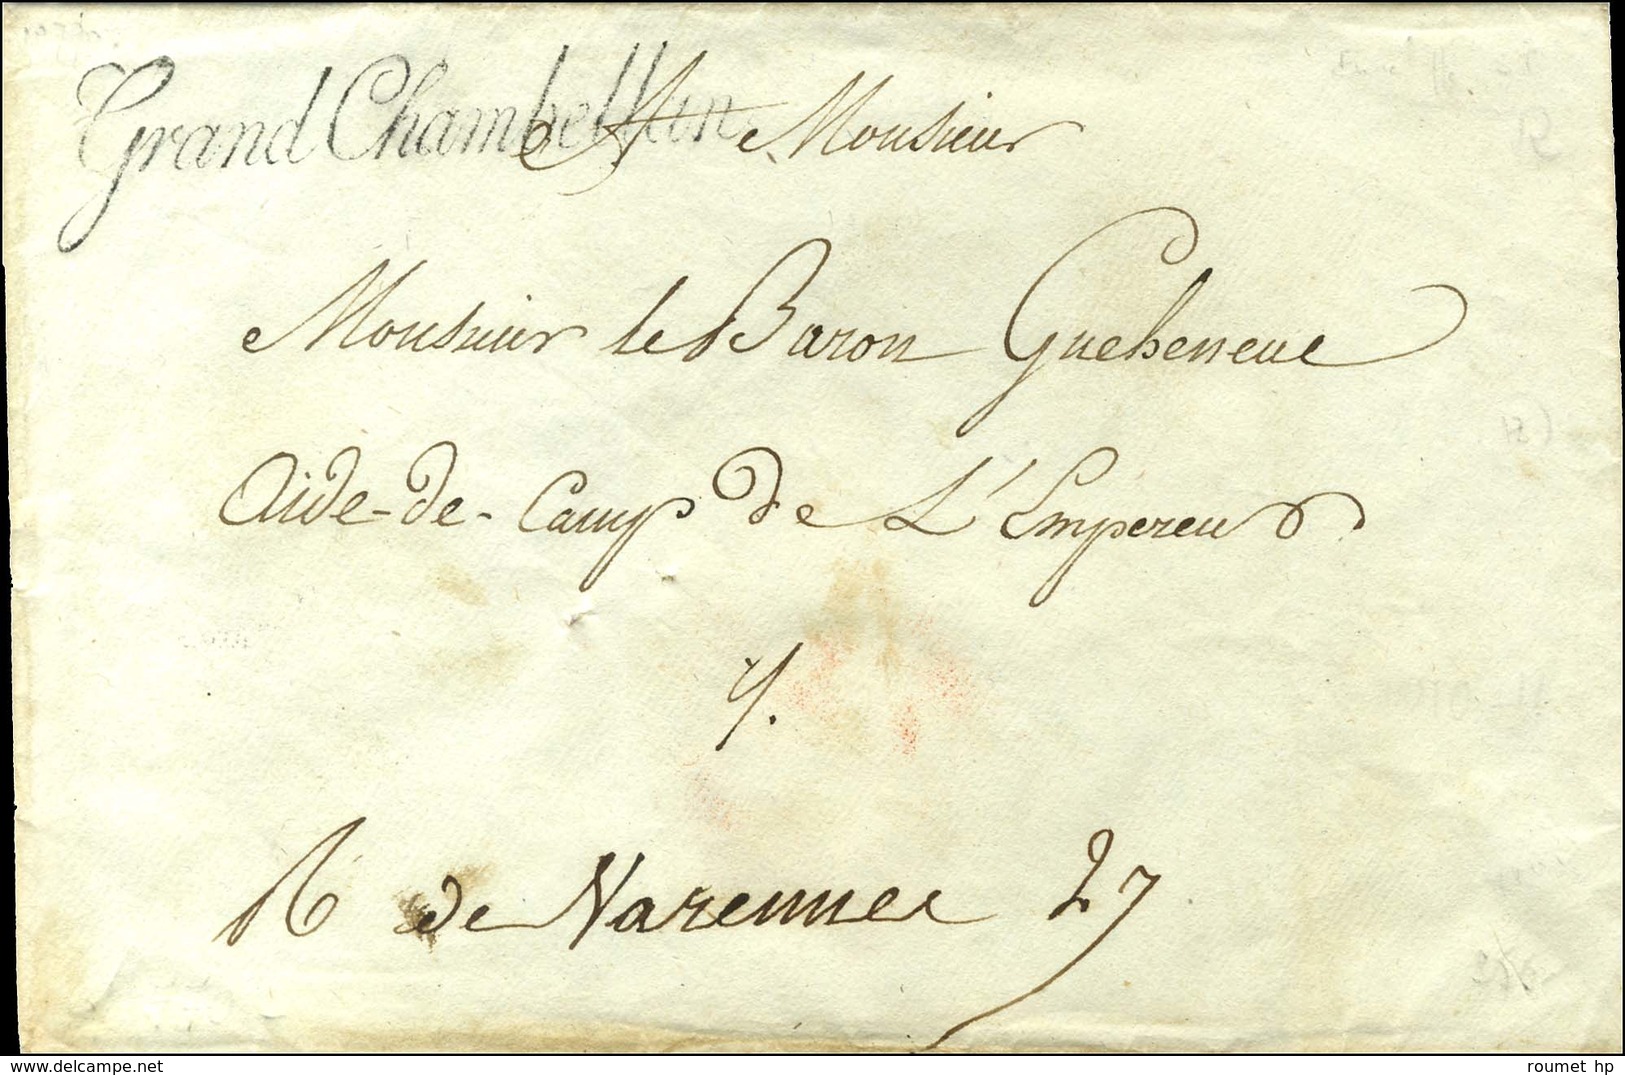 Grand Chambellan.
A Monsieur
Monsieur le Baron Gueheneuc
Aide-de-Camp de L'Empereur
R. de Varennes 27
delcampe.net
roumet hp